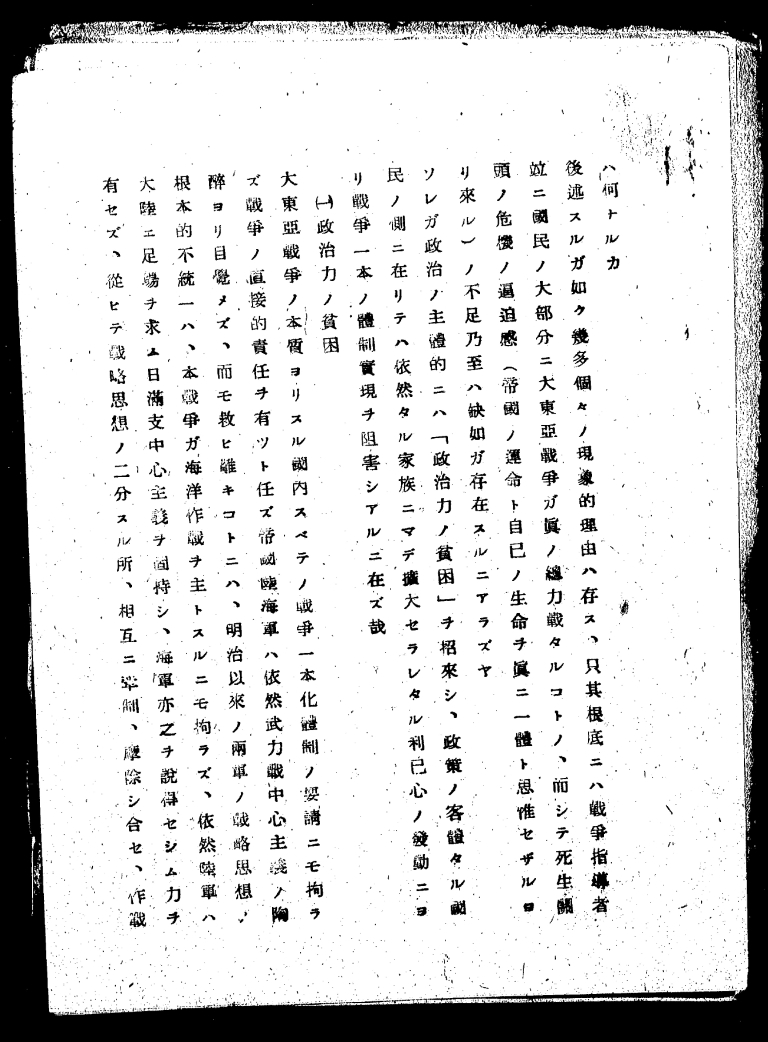 ハ何ナルカ
後述スルガ如ク幾多個々ノ現象的理由ハ存ス、只其根底ニハ戰爭指導者
竝ニ國民ノ大部分ニ大東亞戰爭ガ眞ノ總力戰タルコトノ、而シテ死生關
頭ノ危機ノ逼迫感（帝國ノ運命ト自己ノ生命ヲ眞ニ一體ト思惟セザルヨ
リ來ル）ノ不足乃至ハ缺如ガ存在スルニアラズヤ
ソレガ政治ノ主體的ニハ「政治力ノ貧困」ヲ招來シ、政策ノ客體タル國
民ノ側ニ在リテハ依然タル家族ニマデ擴大セラレタル利己心ノ發動ニヨ
リ戰爭一本ノ體制實現ヲ阻害シアルニ在ズ哉
㈠政治力ノ貧困
大東亞戰爭ノ本質ヨリスル國內スベテノ戰爭一本化體制ノ要請ニモ拘ラ
ズ戰爭ノ直接的責任ヲ有ツト任ズ帝國陸海軍ハ依然武力戰中心主義ノ陶
醉ヨリ目覺メズ、而モ救ヒ難キコトニハ、明治以來ノ兩軍ノ戰略思想ノ
根本的不統一ハ、本戰爭ガ海洋作戰ヲ主トスルニモ拘ラズ、依然陸軍ハ
大陸ニ足場ヲ求ム日滿支中心主義ヲ固持シ、海軍亦之ヲ說得セシム力ヲ
有セズ、從ヒテ戰略思想ノ二分スル所、相互ニ牽制、摩擦シ合セ、作戰